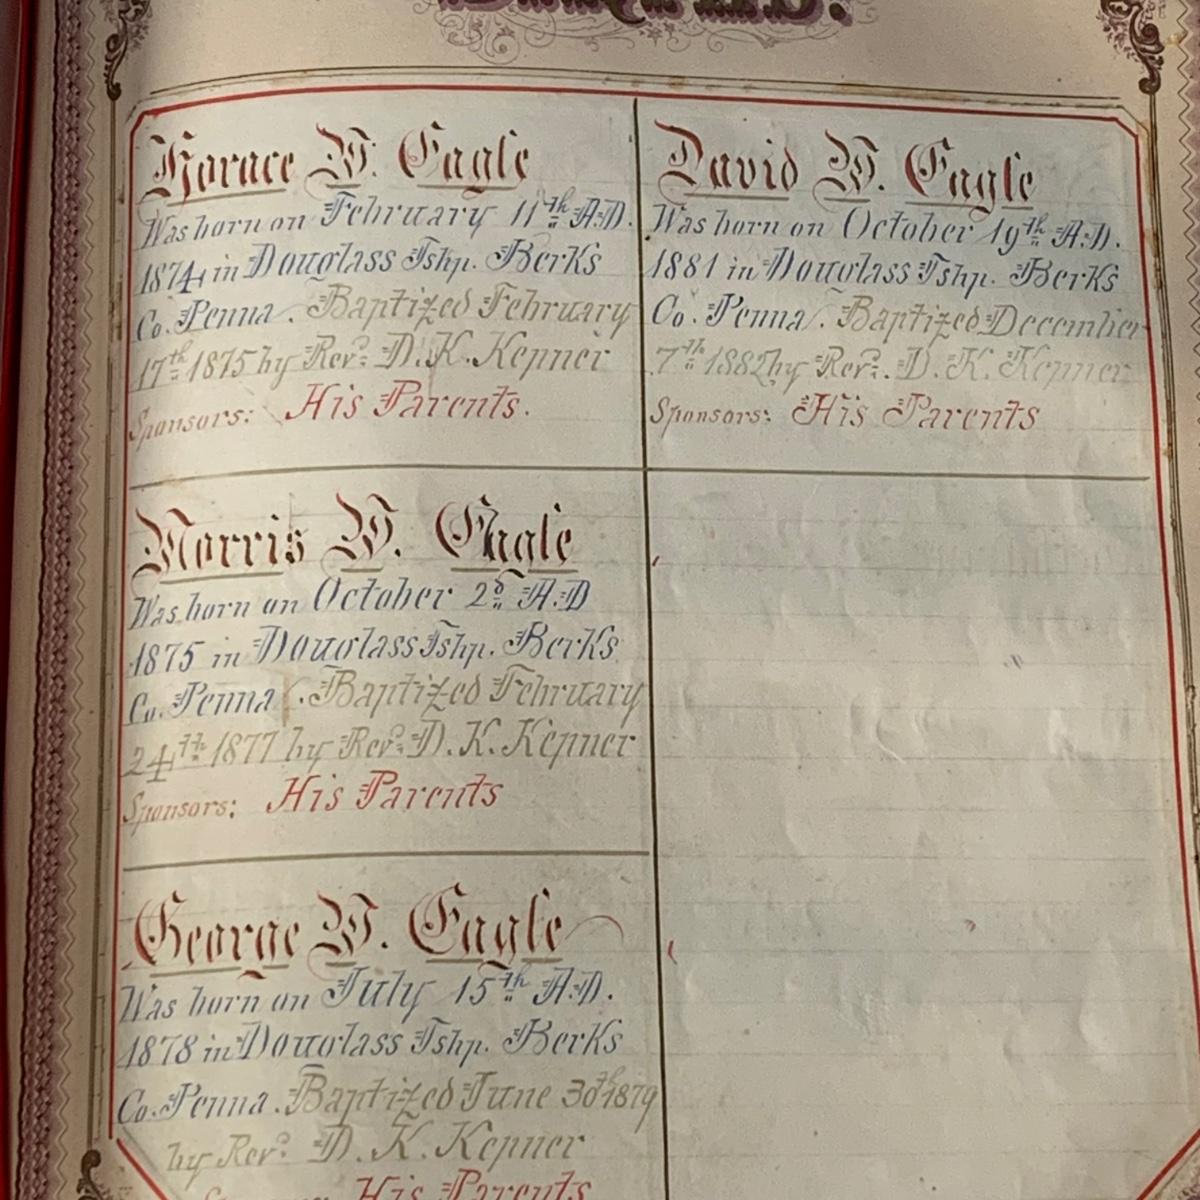 Horace W. Eagle
Was born on February 11th A.D.
1874 in Douglass Tshp. Berks
Co. Penna. Baptized February
17th 1875 by Revd. D. K. Kepner
Sponsors: His Parents.
Morris W. Eagle
Was born on October 2d A.D
1875 in Douglass Tshp. Berks
Co. Penna. Baptized February
24th 1877 by Revd. D. K. Kepner
Sponsors: His Parents
George W. Eagle
Was born on July 15th A.D.
1878 in Douglass Tshp. Berks
Co. Penna. Baptized June 30th 1879
by Revd. D. K. Kepner
His Parents
David W. Eagle
Was born on October 19th A.D.
1881 in Douglass Tshp. Berks
Co. Penna. Baptized December
7th 1882 by Revd. D. K. Kepner
Sponsors: His Parents